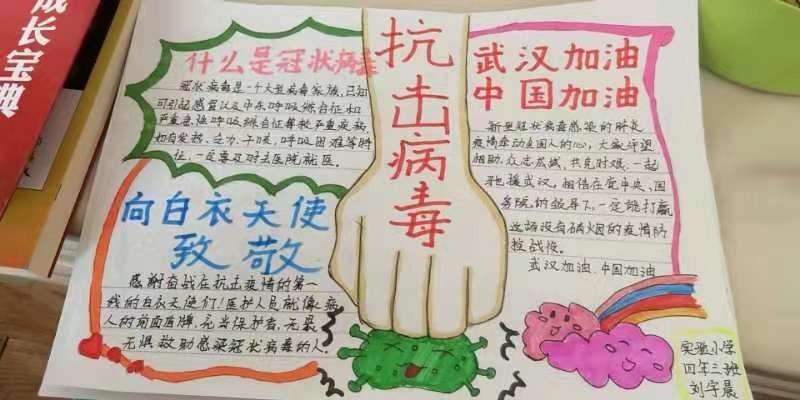 成长宝典
什么是冠状病毒
冠状病毒是一个大型病毒家族,已知
可引起感冒以及中东呼吸综合征和
严重急性呼吸综合征等较严重疾病,
如有发热、乏力、干咳,呼吸困难等特
征,一定要及时去医院就医。
向白衣天使
致敬
感谢奋战在抗击疫情的第一
线的白衣天使们!医护人员就像病
人的前面盾牌,充当保护者,无畏
无惧救助感染冠状病毒的人。
抗击病毒
武汉加油
中国加油
新型冠状病毒感染的肺炎
疫情牵动全国人的心,大家守望
相助,众志成城,共克时艰,一起
驰援武汉,相信在党中央、国
务院的领导下,一定能打赢
这场没有硝烟的疫情防
控战役。
武汉加油 中国加油
实验小学
四年三班
刘宇晨